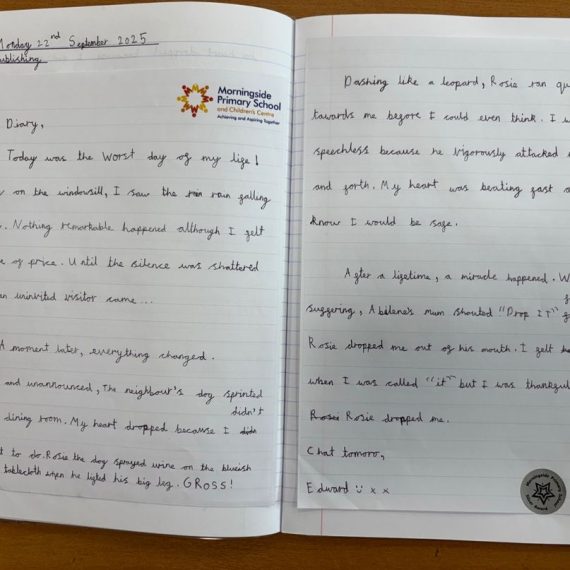 Monday 22nd September 2025
publishing
Morningside
Primary School
and Children's Centre
Achieving and Aspiring Together
Diary,
Today was the worst day of my life!
on the windowsill, I saw the rain rain falling
. Nothing remarkable happened although I felt
of price. Until the silence was shattered
uninvited visitor came...
A moment later, everything changed.
and unannounced, The neighbour's dog sprinted
didn't
dining room. My heart dropped because I didn
to do. Rosie the dog sprayed urine on the blueish
tablecloth when he lifted his big leg. GROSS!
Dashing like a leopard, Rosie ran
towards me before I could even think. I
speechless because he vigorously attacked
and forth. My heart was beating fast
know I would be safe.
After a lifetime, a miracle happened.
suffering, Abilene's mum shouted "Drop IT"
Rosie dropped me out of his mouth. I felt
when I was called "it" but I was thankful
Rosei Rosie dropped me.
Chat tomoro,
Edward x x